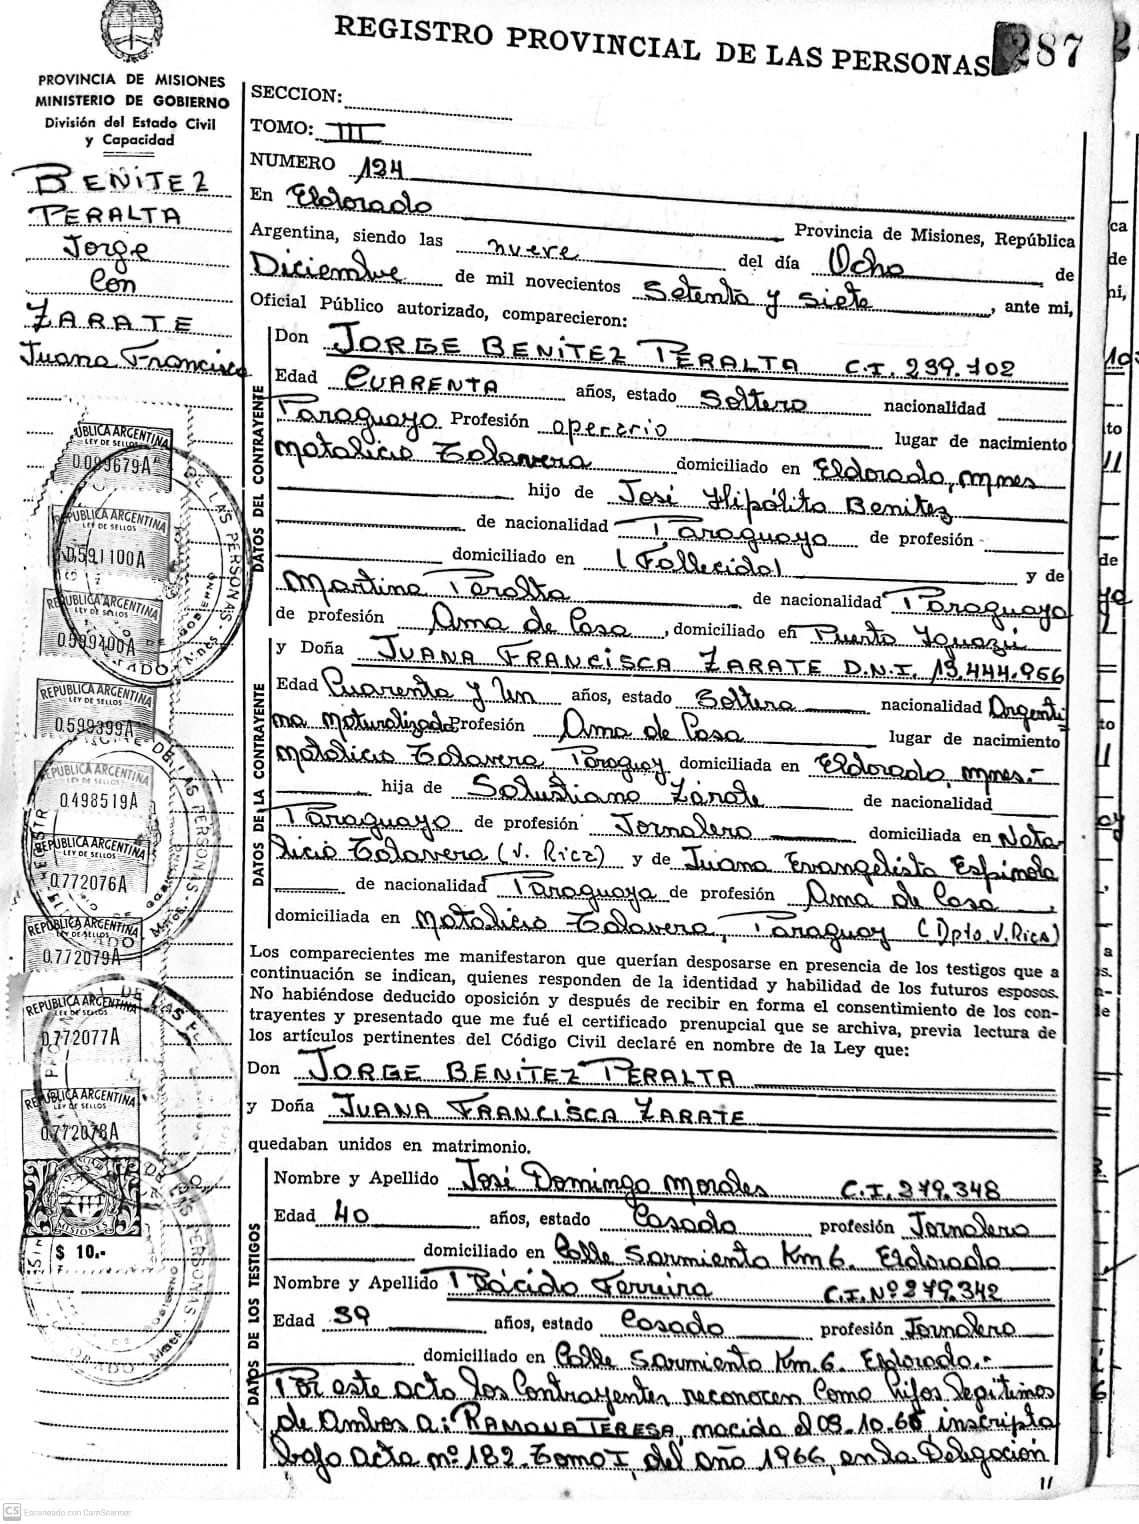 REGISTRO PROVINCIAL DE LAS PERSONAS
287
PROVINCIA DE MISIONES
MINISTERIO DE GOBIERNO
División del Estado Civil
y Capacidad
BENÍTEZ
PERALTA
Jorge
Con
ZARATE
Juana Francisca
SECCION:
TOMO: III
NUMERO 124
En Eldorado
Provincia de Misiones, República
Argentina, siendo las nueve del día Ocho de
Diciembre de mil novecientos Setenta y siete, ante mi,
Oficial Público autorizado, comparecieron:
DATOS DEL CONTRAYENTE
Don JORGE BENÍTEZ PERALTA C.I. 239.702
Edad CUARENTA años, estado Soltero nacionalidad
Paraguayo Profesión operario lugar de nacimiento
Natalicio Talavera domiciliado en Eldorado, Mnes
hijo de José Hipólito Benitez
de nacionalidad Paraguayo de profesión
domiciliado en (Fallecido) y de
Martina Peralta de nacionalidad Paraguaya
de profesión Ama de Casa, domiciliado en Puerto Iguazú
DATOS DE LA CONTRAYENTE
y Doña JUANA FRANCISCA ZARATE D.N.I. 13.444.956
Edad Cuarenta y Un años, estado Soltera nacionalidad Argenti-
na naturalizada Profesión Ama de Casa lugar de nacimiento
Natalicio Talavera Paraguay, domiciliada en Eldorado, Mnes.-
hija de Salustiano Zárate de nacionalidad
Paraguayo de profesión Jornalero domiciliada en Nata-
licio Talavera (V. Rica) y de Juana Evangelista Espinola
de nacionalidad Paraguaya de profesión Ama de Casa,
domiciliada en Natalicio Talavera, Paraguay (Dpto. V. Rica)
Los comparecientes me manifestaron que querían desposarse en presencia de los testigos que a
continuación se indican, quienes responden de la identidad y habilidad de los futuros esposos.
No habiéndose deducido oposición y después de recibir en forma el consentimiento de los con-
trayentes y presentado que me fué el certificado prenupcial que se archiva, previa lectura de
los artículos pertinentes del Código Civil declaré en nombre de la Ley que:
Don JORGE BENÍTEZ PERALTA
y Doña JUANA FRANCISCA ZARATE
quedaban unidos en matrimonio.
DATOS DE LOS TESTIGOS
Nombre y Apellido José Domingo Morales C.I. 279.348
Edad 40 años, estado Casado profesión Jornalero
domiciliado en Calle Sarmiento Km 6. Eldorado
Nombre y Apellido Plácido Ferreira C.I. Nº 279.342
Edad 39 años, estado Casado profesión Jornalero
domiciliado en Calle Sarmiento Km. 6. Eldorado.-
Por este acto los Contrayentes reconocen Como hijos legítimos
de Ambos a: RAMONA TERESA, nacida el 03.10.65 inscripta
bajo acta nº 182 Tomo I, del año 1966, en la Delegación
//
REPUBLICA ARGENTINA
LEY DE SELLOS
0.099679A
REPUBLICA ARGENTINA
LEY DE SELLOS
0.591100A
REPUBLICA ARGENTINA
LEY DE SELLOS
0.599400A
REPUBLICA ARGENTINA
LEY DE SELLOS
0.599399A
REPUBLICA ARGENTINA
LEY DE SELLOS
0.498519A
REPUBLICA ARGENTINA
LEY DE SELLOS
0.772076A
REPUBLICA ARGENTINA
LEY DE SELLOS
0.772079A
REPUBLICA ARGENTINA
LEY DE SELLOS
0.772077A
REPUBLICA ARGENTINA
LEY DE SELLOS
0.772078A
MISIONES
$ 10.-
CS Escaneado con CamScanner